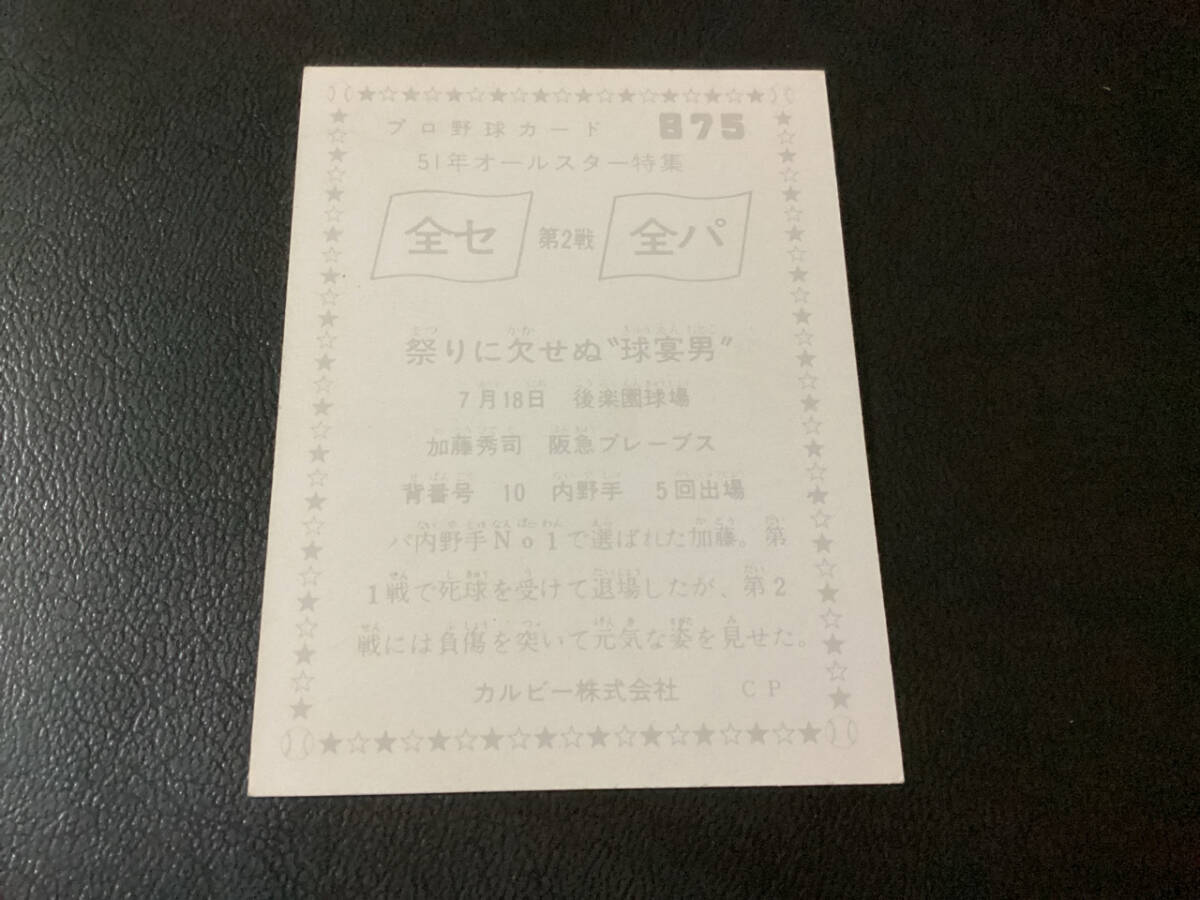 プロ野球カード 875
51年オールスター特集
全セ 第2戦 全パ
祭りに欠せぬ“球宴男”
7月18日 後楽園球場
加藤秀司 阪急ブレーブス
背番号 10 内野手 5回出場
パ内野手No1で選ばれた加藤。第
1戦で死球を受けて退場したが、第2
戦には負傷を突いて元気な姿を見せた。
カルビー株式会社 CP